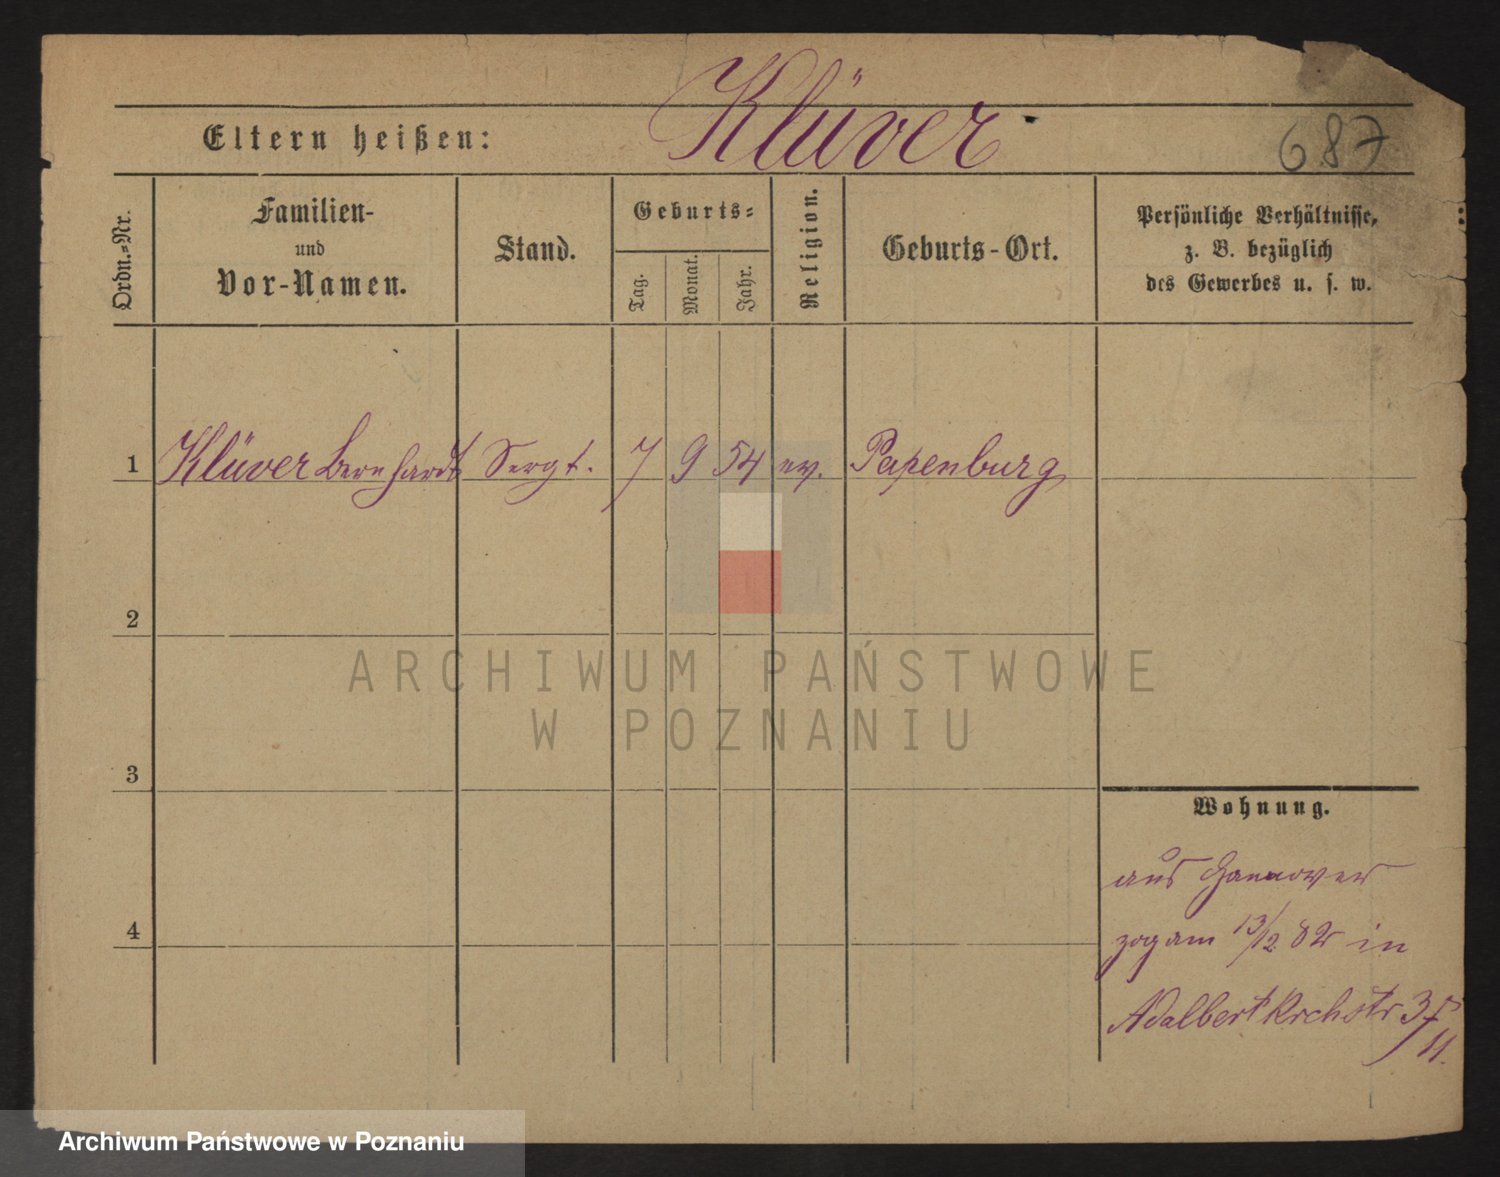 Klüver
Eltern heißen:
687
Ordn.-Nr.
Familien-
und
Vor-Namen.
Stand.
Geburts-
Tag.
Monat.
Jahr.
Religion.
Geburts-Ort.
Persönliche Verhältnisse,
z. B. bezüglich
des Gewerbes u. s. w.
1 Klüver Bernhardt Sergt. 7 9 54 ev. Papenburg
2
ARCHIWUM PAŃSTWOWE
W POZNANIU
3
Wohnung.
aus Hannover
4
zog am 13/12 82 in
Adalbertkrchstr 3
Archiwum Państwowe w Poznaniu